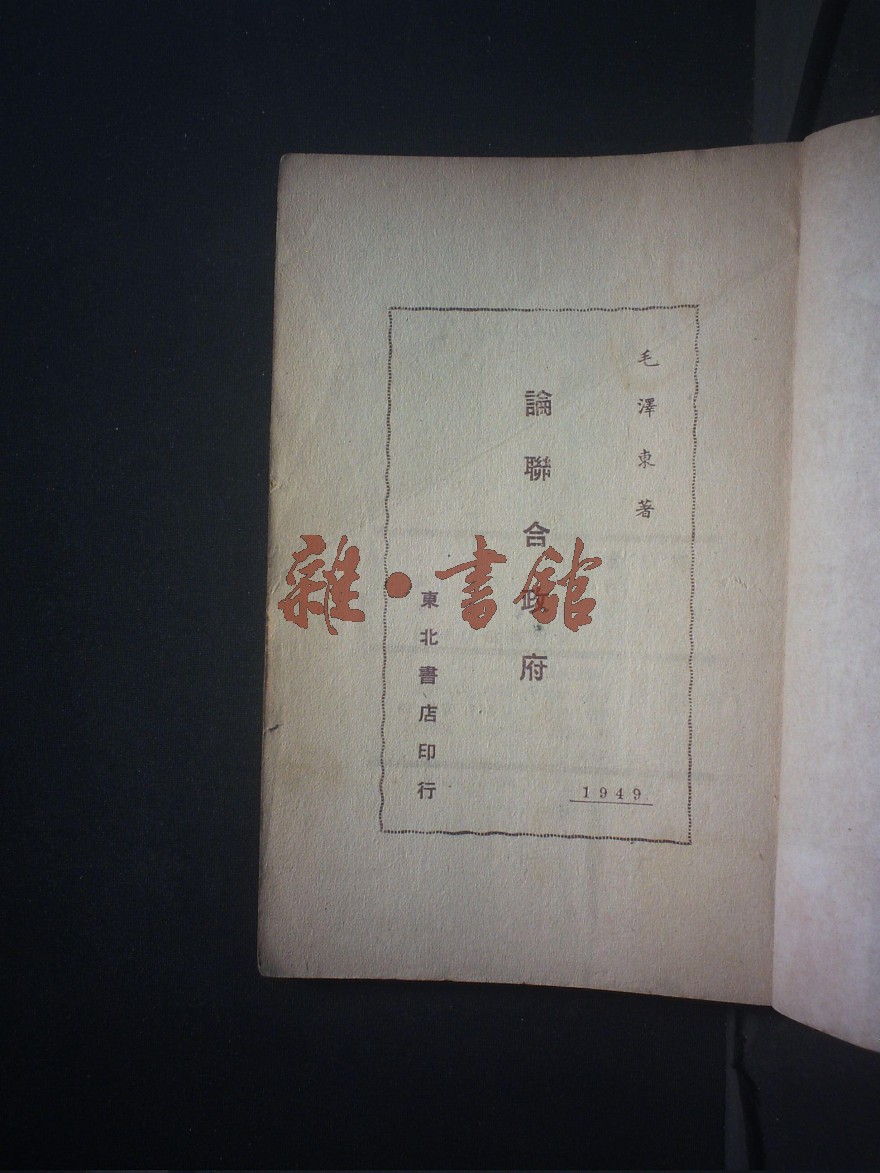 毛澤東著
論聯合政府
東北書店印行
1949
雜·書舘